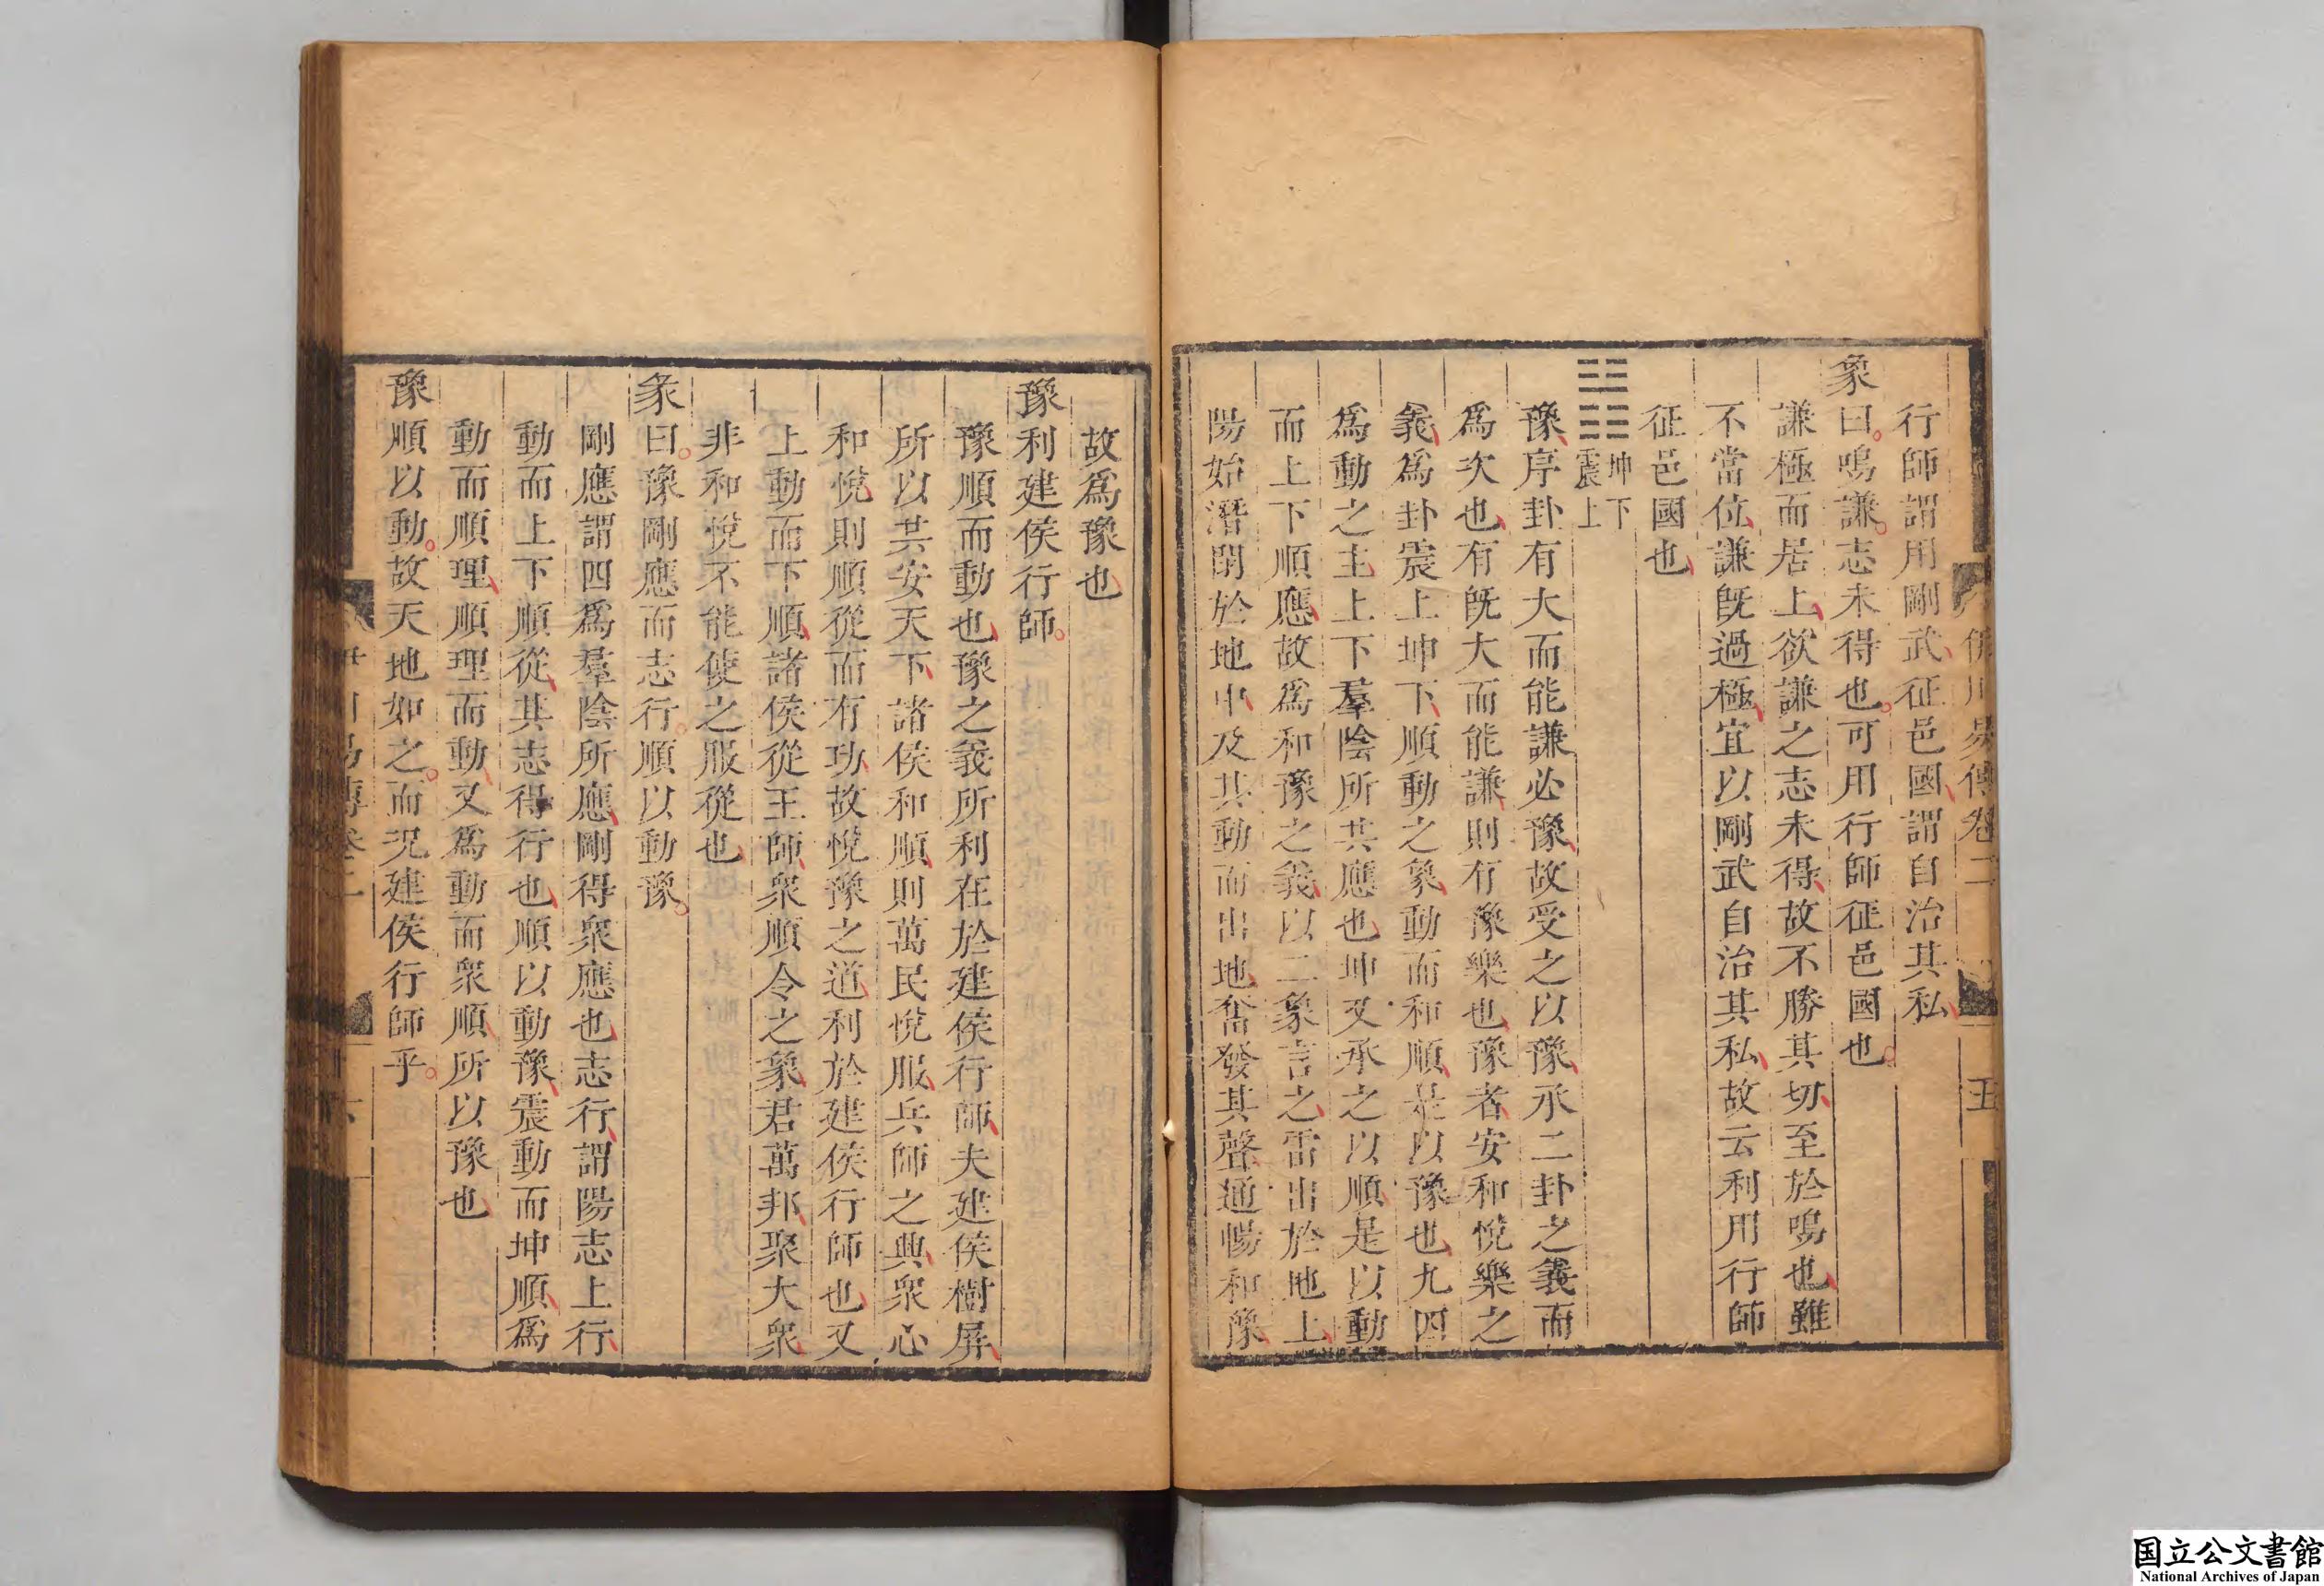 伊川易傳卷二
五
行師謂用剛武征邑國謂自治其私
象曰鳴謙志未得也可用行師征邑國也
謙極而居上欲謙之志未得故不勝其切至於鳴也雖
不當位謙旣過極宜以剛武自治其私故云利用行師
征邑國也
坤下
震上
豫序卦有大而能謙必豫故受之以豫承二卦之義而
爲次也有旣大而能謙則有豫樂也豫者安和悅樂之
義爲卦震上坤下順動之象動而和順是以豫也九四
爲動之主上下羣陰所共應也坤又承之以順是以動
而上下順應故爲和豫之義以二象言之雷出於地上
陽始潛閉於地中及其動而出地奮發其聲通暢和豫
故爲豫也
豫利建侯行師
豫順而動也豫之義所利在於建侯行師夫建侯樹屏
所以共安天下諸侯和順則萬民悅服兵師之興衆心
和悅則順從而有功故悅豫之道利於建侯行師也又
上動而下順諸侯從王師衆順令之象君萬邦聚大衆
非和悅不能使之服從也
彖曰豫剛應而志行順以動豫
剛應謂四爲羣陰所應剛得衆應也志行謂陽志上行
動而上下順從其志得行也順以動豫震動而坤順爲
動而順理順理而動又爲動而衆順所以豫也
豫順以動故天地如之而況建侯行師乎
伊川易傳卷二
六
国立公文書館
National Archives of Japan